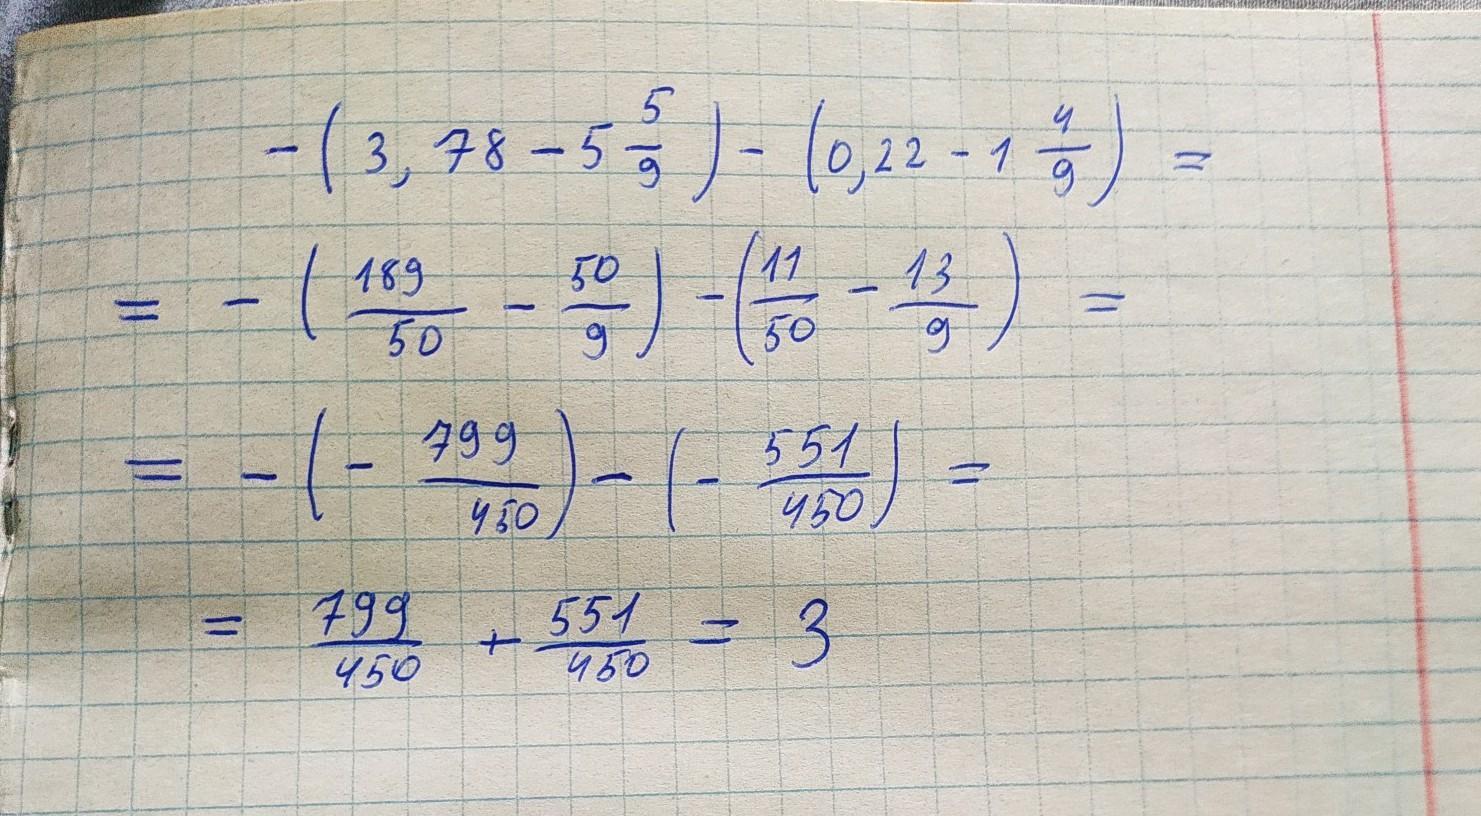 - ( 3,78 - 5 5/9 ) - ( 0,22 - 1 4/9 ) =
= - ( 189/50 - 50/9 ) - ( 11/50 - 13/9 ) =
= - ( - 799/450 ) - ( - 551/450 ) =
= 799/450 + 551/450 = 3